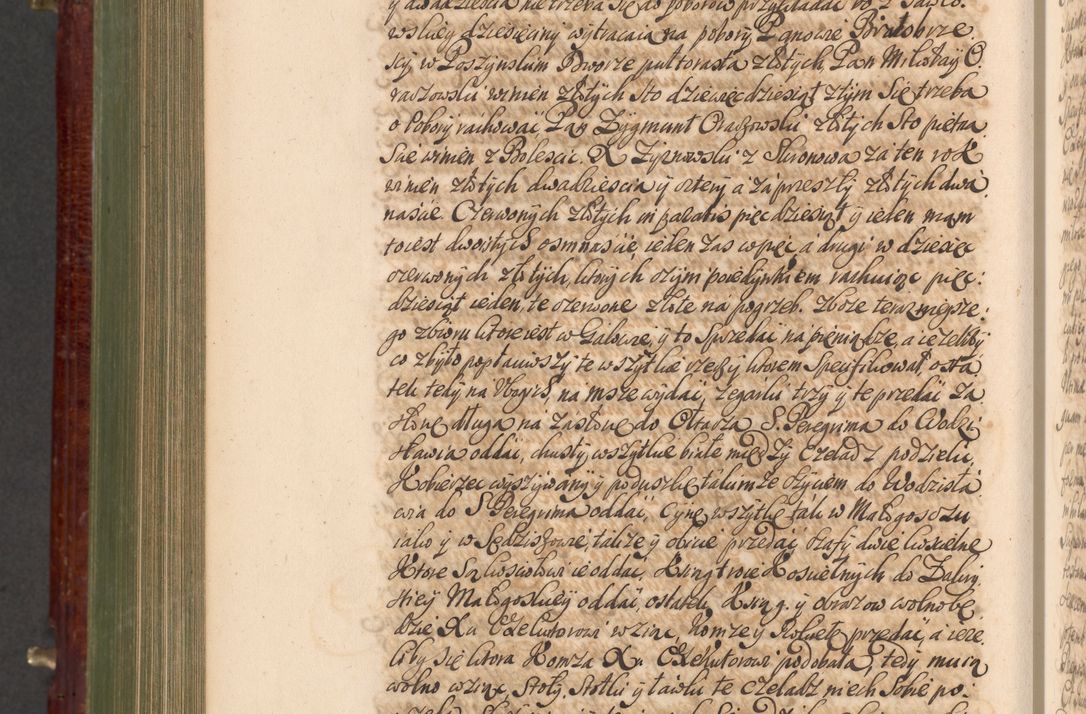 y dwadziescia nie trzeba się do poborow przykładac bo z
wskiey dziesięciny wytracaią na pobory Panowie Bratobrze
scy, w Poszynskim Dworze pułtorasta złotych, Pan Mikołay O
raczowski winien złotych sto dziewięcdziesiąt z tym się trzeba
o Pobory rachowac, Pan Zygmunt Oraczowski złotych sto piętna
scie winien z Bolescic. X Zyrnowski z Skronowa za ten rok
winien złotych dwadziescia y cztery a za przeszły złotych dwa
nascie. Czerwonych złotych in paratis pięcdziesiąt y ieden mam
to iest dwoistych osmnascie, ieden zas w pięc, a drugi w dziesięc
czerwonych złotych, ktorych czym poiedynkiem rachuiąc pięc:
dziesiąt ieden, te czerwone złote na pogrzeb. Zboze teraznieysze:
go zbioru ktore iest w Gałowie, y to sprzedac na pieniądze, a iezeliby
co zbyło popłaciwszy te wszytkie rzeczy ktorem specifikował, osta
tek tedy na Ubogich, na msze wydac, zegarki trzy y te przedac Za
słonę długą na zasłonę do Ołtarza S. Peregrina do Wodzi
sławia oddac, chusty wszytkie białe między Czeladz podzielic,
Kobierzec wyszywany y poduszkę takimze szyciem do Wodzisła
wia do S Peregrina oddac, Cynę wszytkę tak w Małogosczu
iako y w Sędziszowie, takze y obicie przedac, szafy dwie koscielne
Ktore są kosciołowi ie oddac. Ksiąg troie Koscielnych do Zakry
styey Małogoskiey oddac, ostatek Ksiąg y obrazow wolno bę
dzie Xu Exekutorowi wziąc, Komzę y Rokietę przedac, a ieze
liby się ktora Komza Xu Exekutorowi podobała, tedy mu ią
wolno wziąc, Stoły, Stołki y ławki te czeladz niech sobie po: